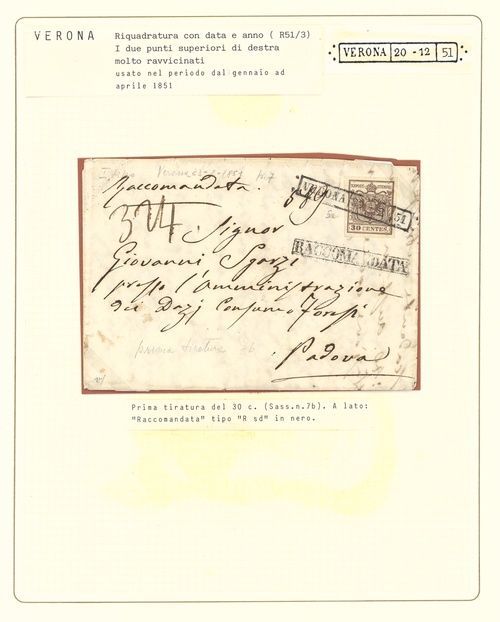 VERONA
Riquadratura con data e anno ( R51/3)
I due punti superiori di destra
molto ravvicinati
usato nel periodo dal gennaio ad
aprile 1851
VERONA 20 -12 51
Raccomandata.
VERONA 51
30 CENTES.
324
Signor
RACCOMANDATA
Giovanni Sgarzi
presso l'Amministrazione
dei Dazj Consumo Foresi
prima tiratura 7b
Padova
Prima tiratura del 30 c. (Sass.n.7b). A lato:
"Raccomandata" tipo "R sd" in nero.